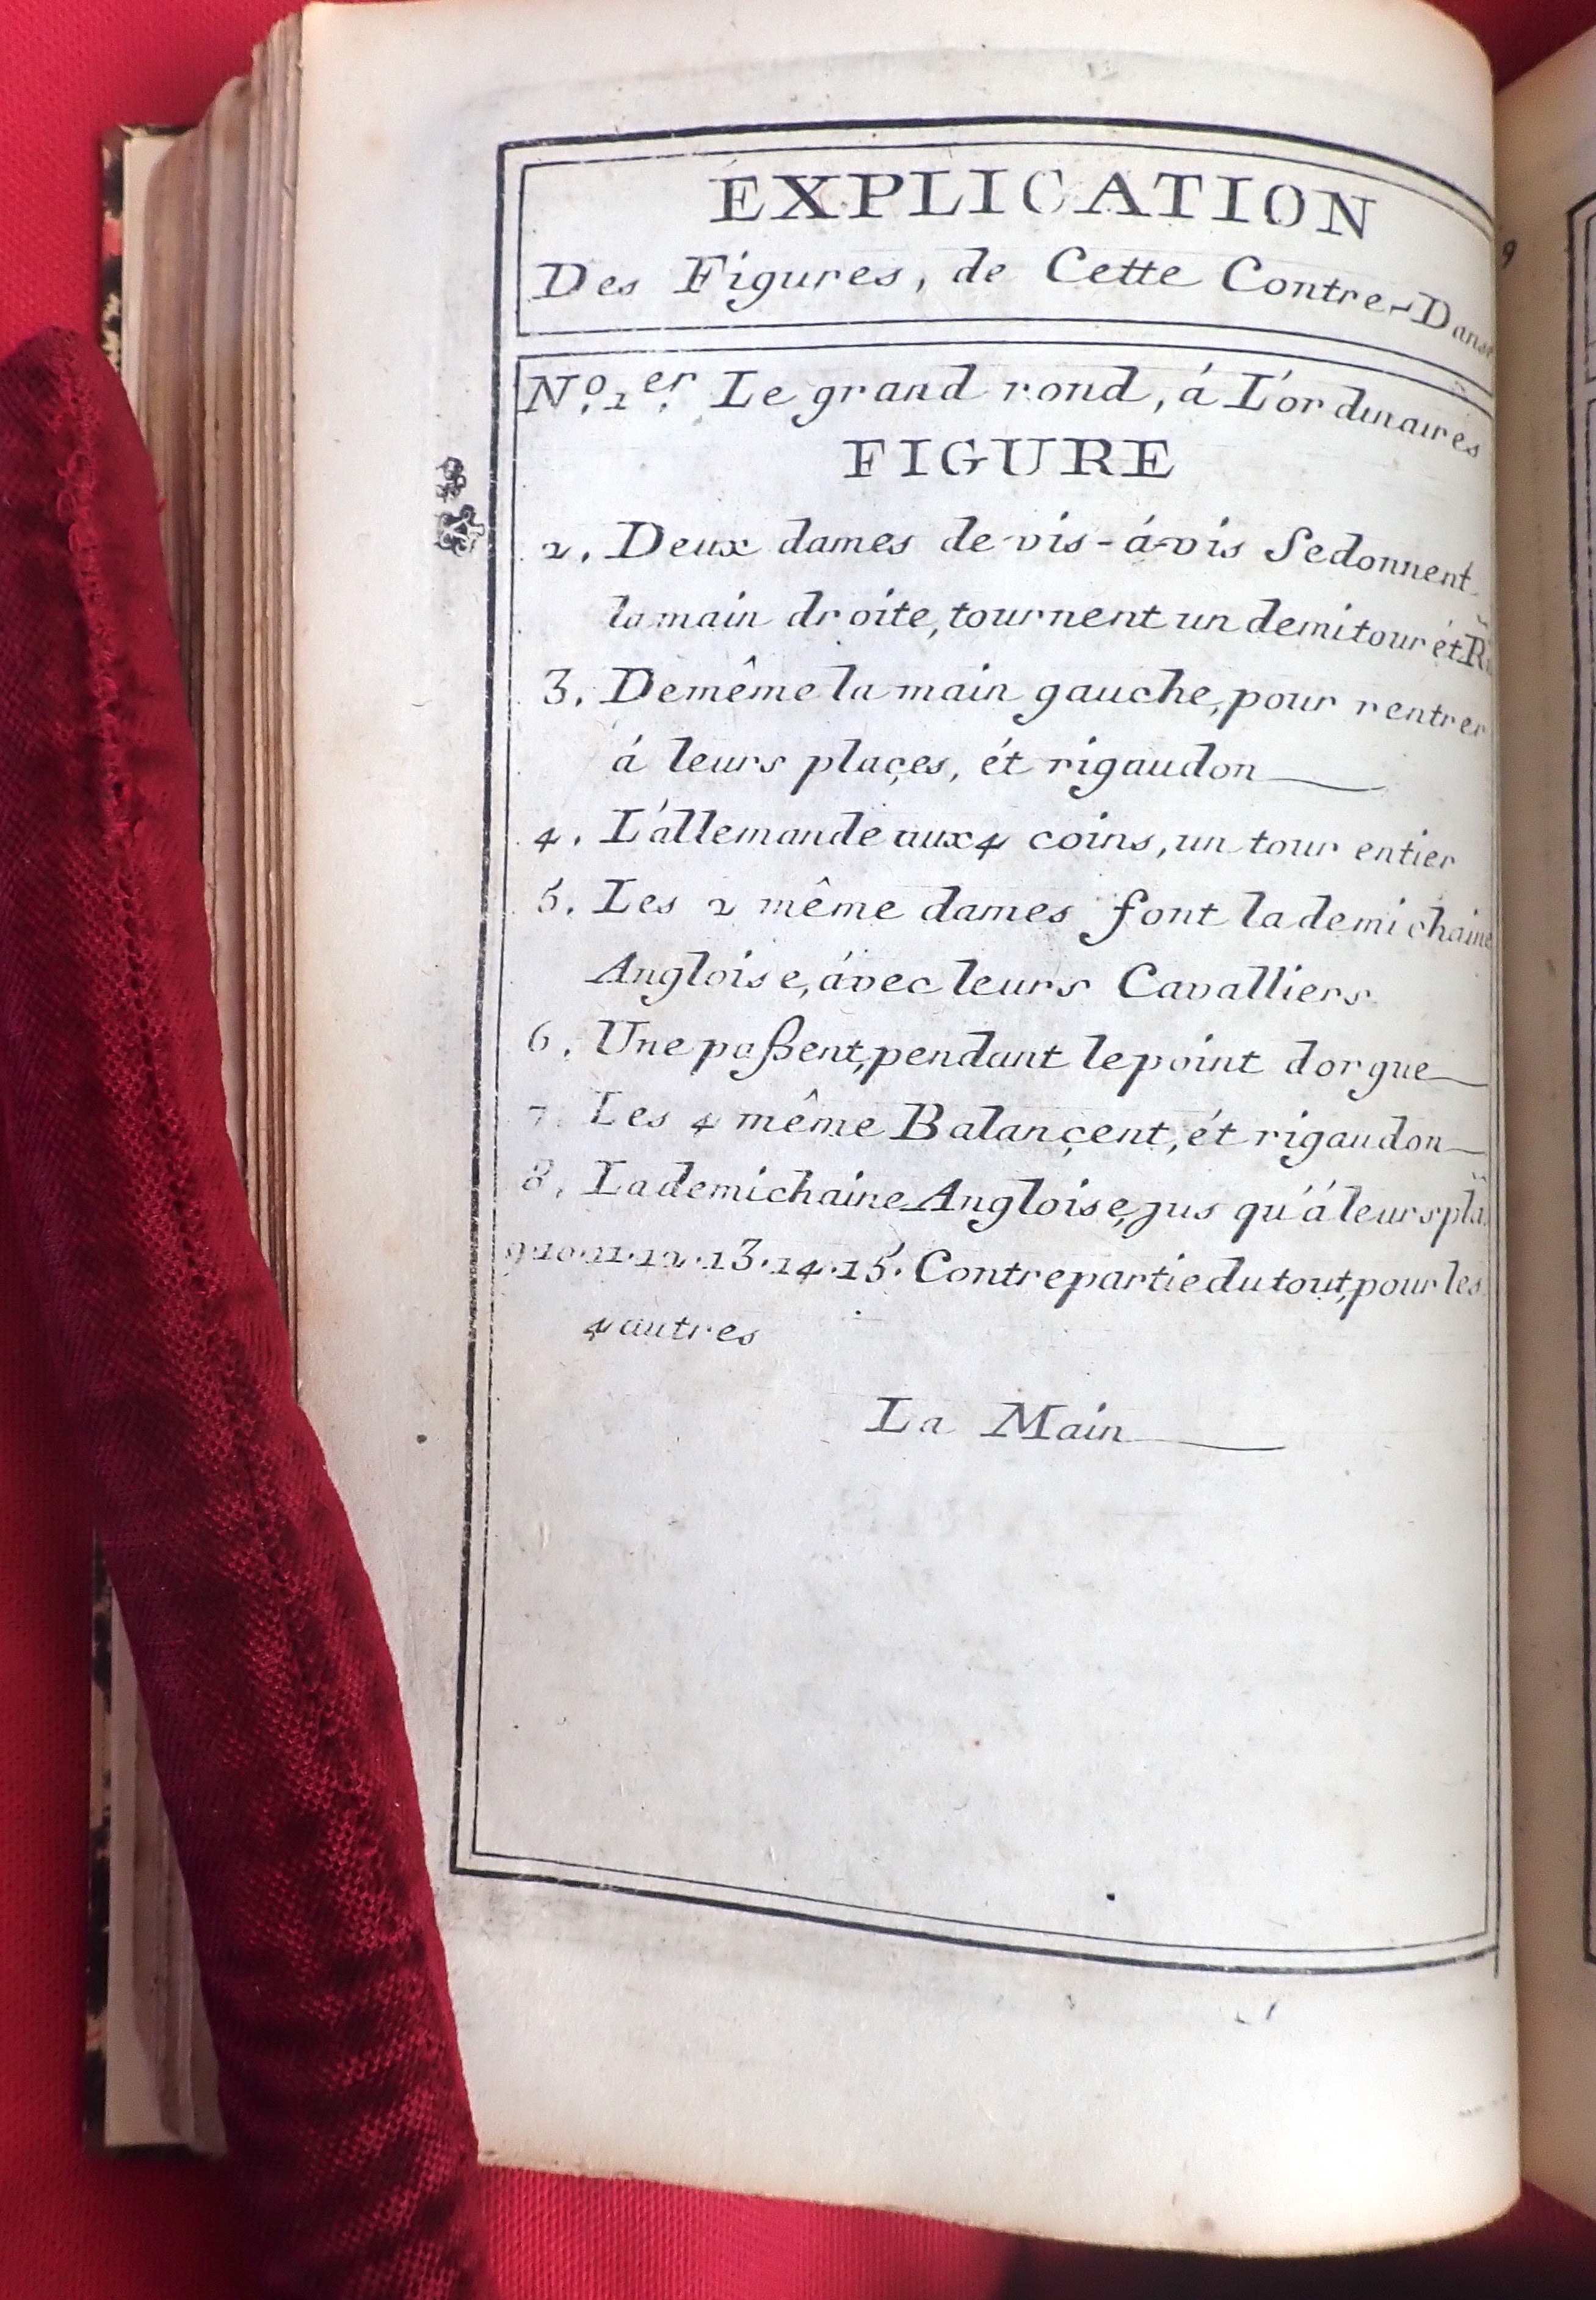 ÉXPLICATION
Des Figures, de Cette Contre-Danse
N.º 1.er Le grand rond, á L'órdinaires
FIGURE
2. Deux dames de vis-á-vis Sedonnent
la main droite, tournent un demi tour ét
3. Demême la main gauche, pour rentrer
á leurs plaçes, ét rigaudon
4. L'állemande aux 4 coins, un tour entier
5. Les 2 même dames font la demi chaine
Angloise, ávec leurs Cavalliers
6. Une paßent, pendant le point dorgue
7. Les 4 même Balançent, ét rigaudon
8. La demi chaine Angloise, jus qu'á leurs
9.10.11.12.13.14.15. Contre partie du tout, pour les
4 autres
La Main